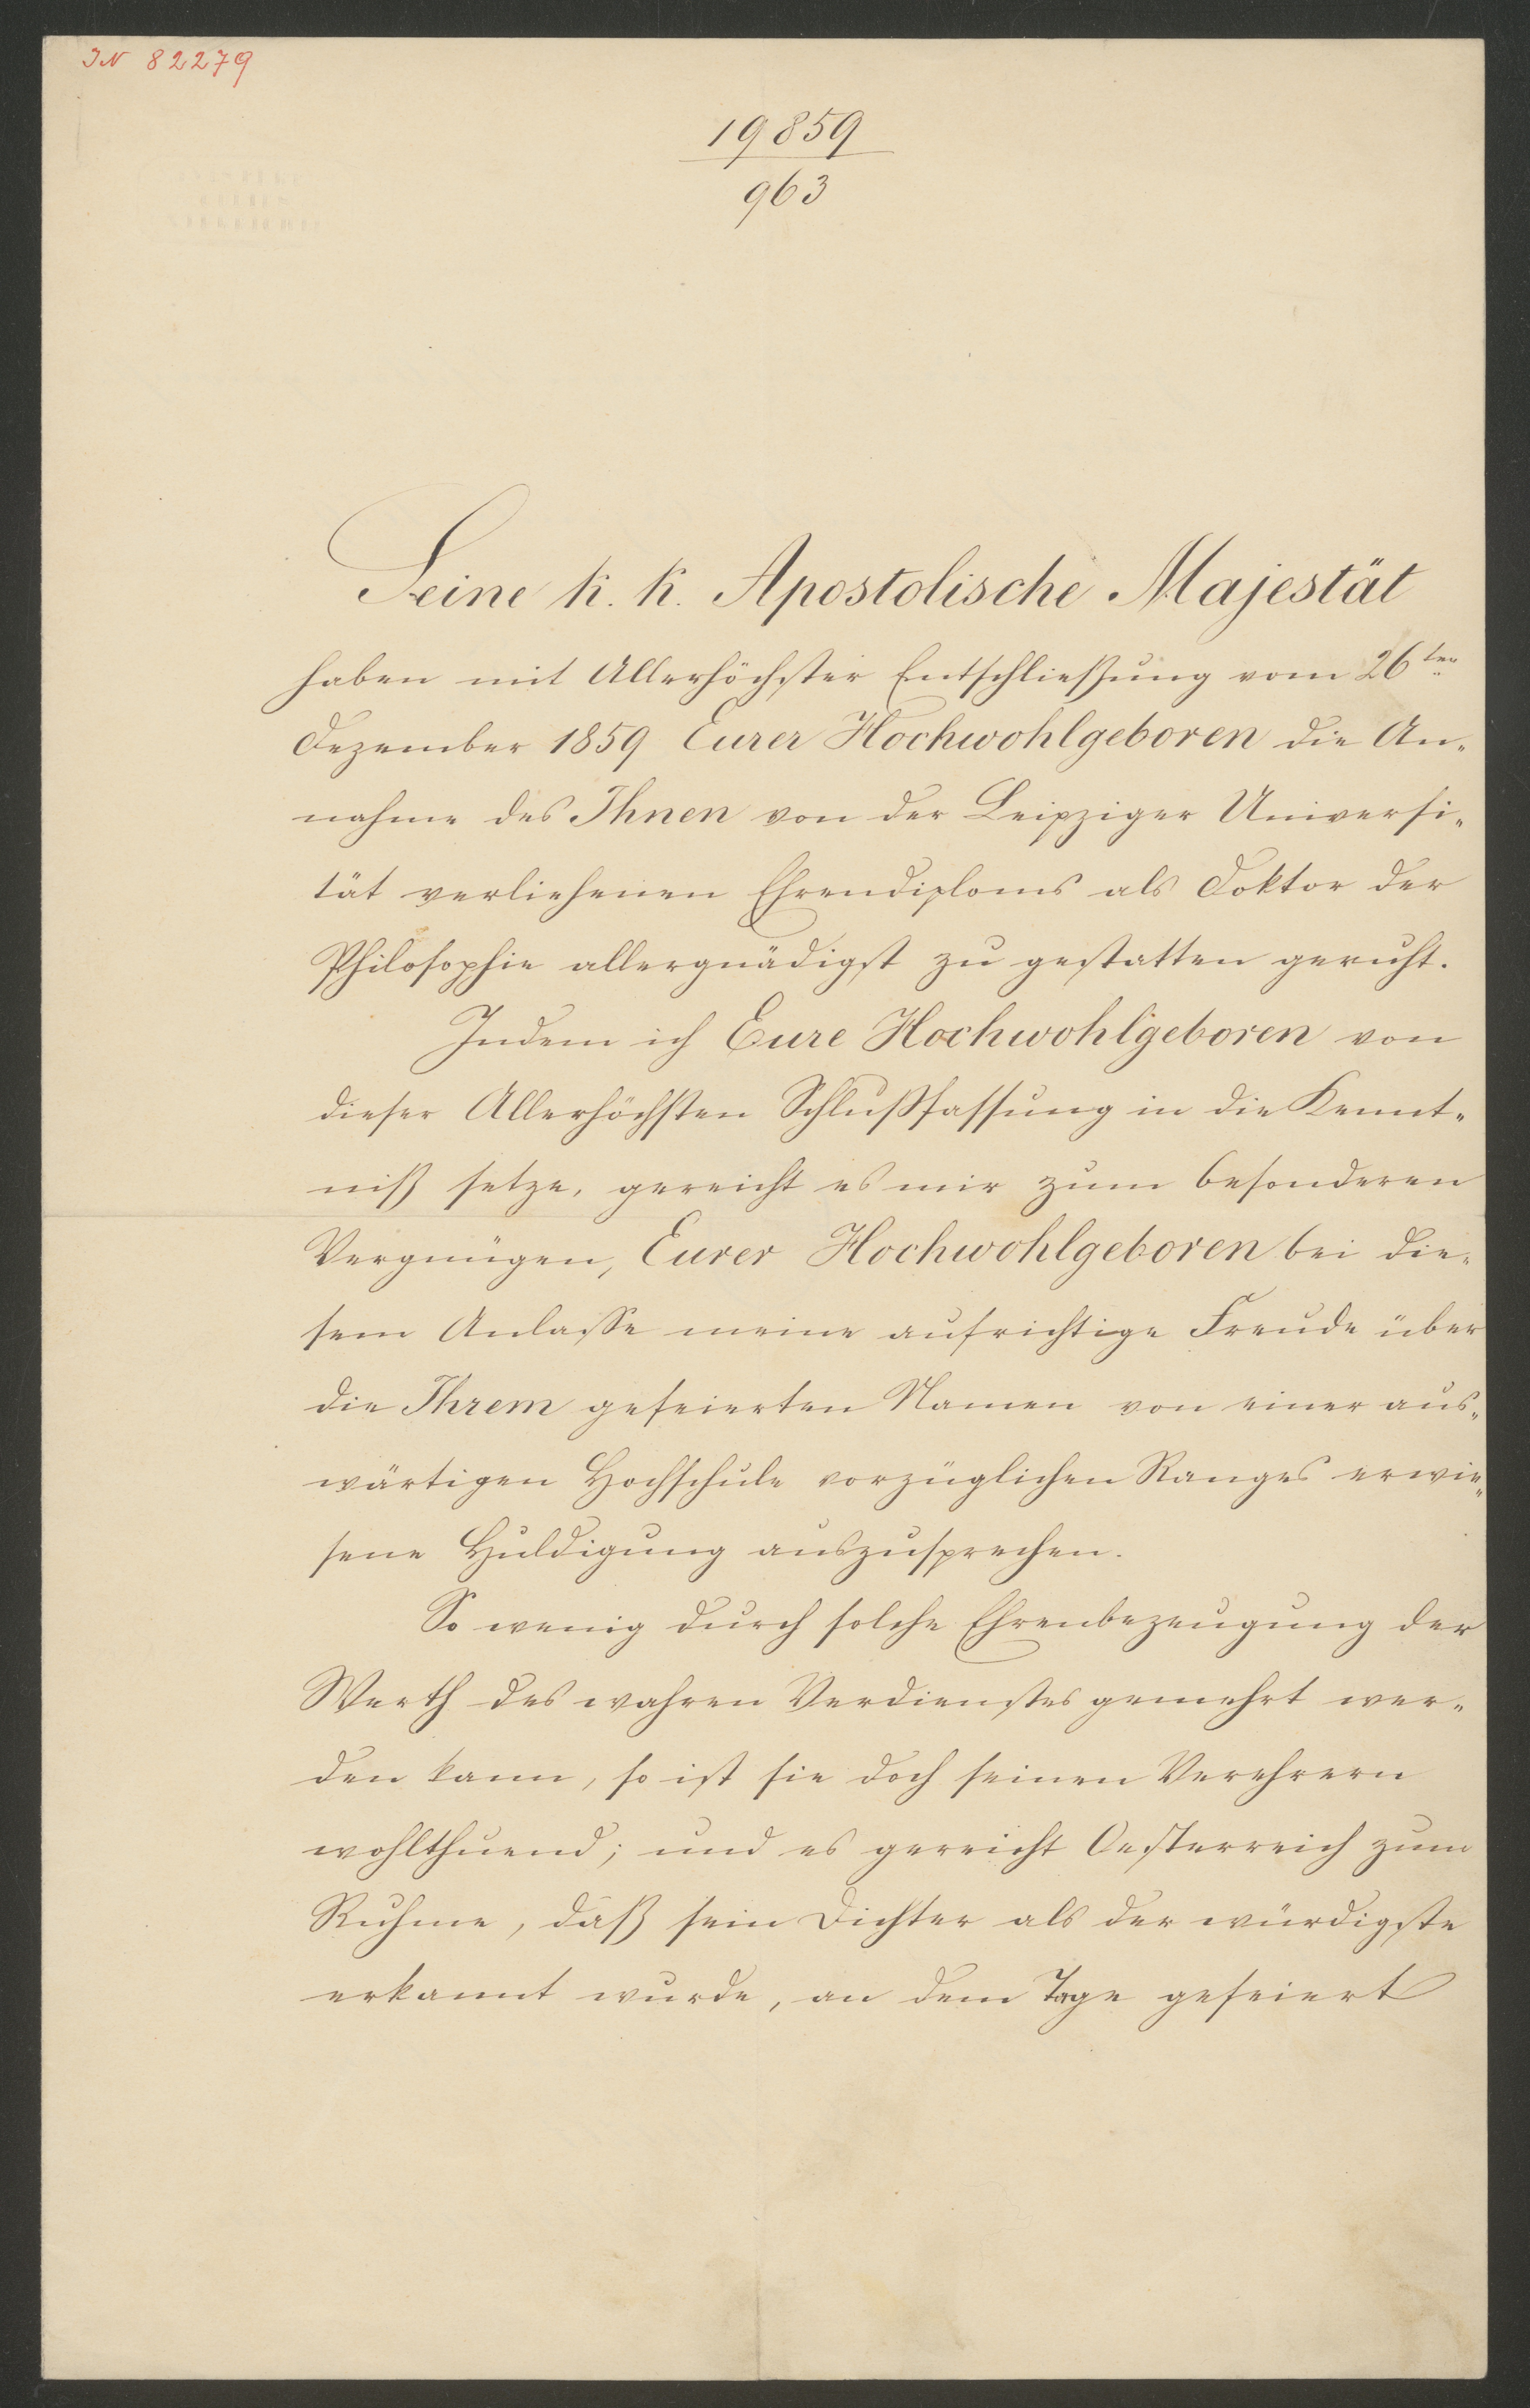 IN 82279
19859
963
Seine k. k. Apostolische Majestät
haben mit Allerhöchster Entschließung vom 26ten
Dezember 1859 Eurer Hochwohlgeboren die An-
nahme des Ihnen von der Leipziger Universi-
tät verliehenen Ehrendiploms als Doktor der
Philosophie allergnädigst zu gestatten geruht.
Indem ich Eure Hochwohlgeboren von
dieser Allerhöchsten Schlußfassung in die Kennt-
niß setze, gereicht es mir zum besonderen
Vergnügen, Eurer Hochwohlgeboren bei die-
sem Anlasse meine aufrichtige Freude über
die Ihrem gefeierten Namen von einer aus-
wärtigen Hochschule vorzüglichen Ranges erwie-
sene Huldigung auszusprechen.
So wenig durch solche Ehrenbezeugung der
Werth des wahren Verdienstes gemehrt wer-
den kann, so ist sie doch seinen Verehrern
wohlthuend; und es gereicht Oesterreich zum
Ruhme, daß sein Dichter als der würdigste
erkannt wurde, an dem Tage gefeiert